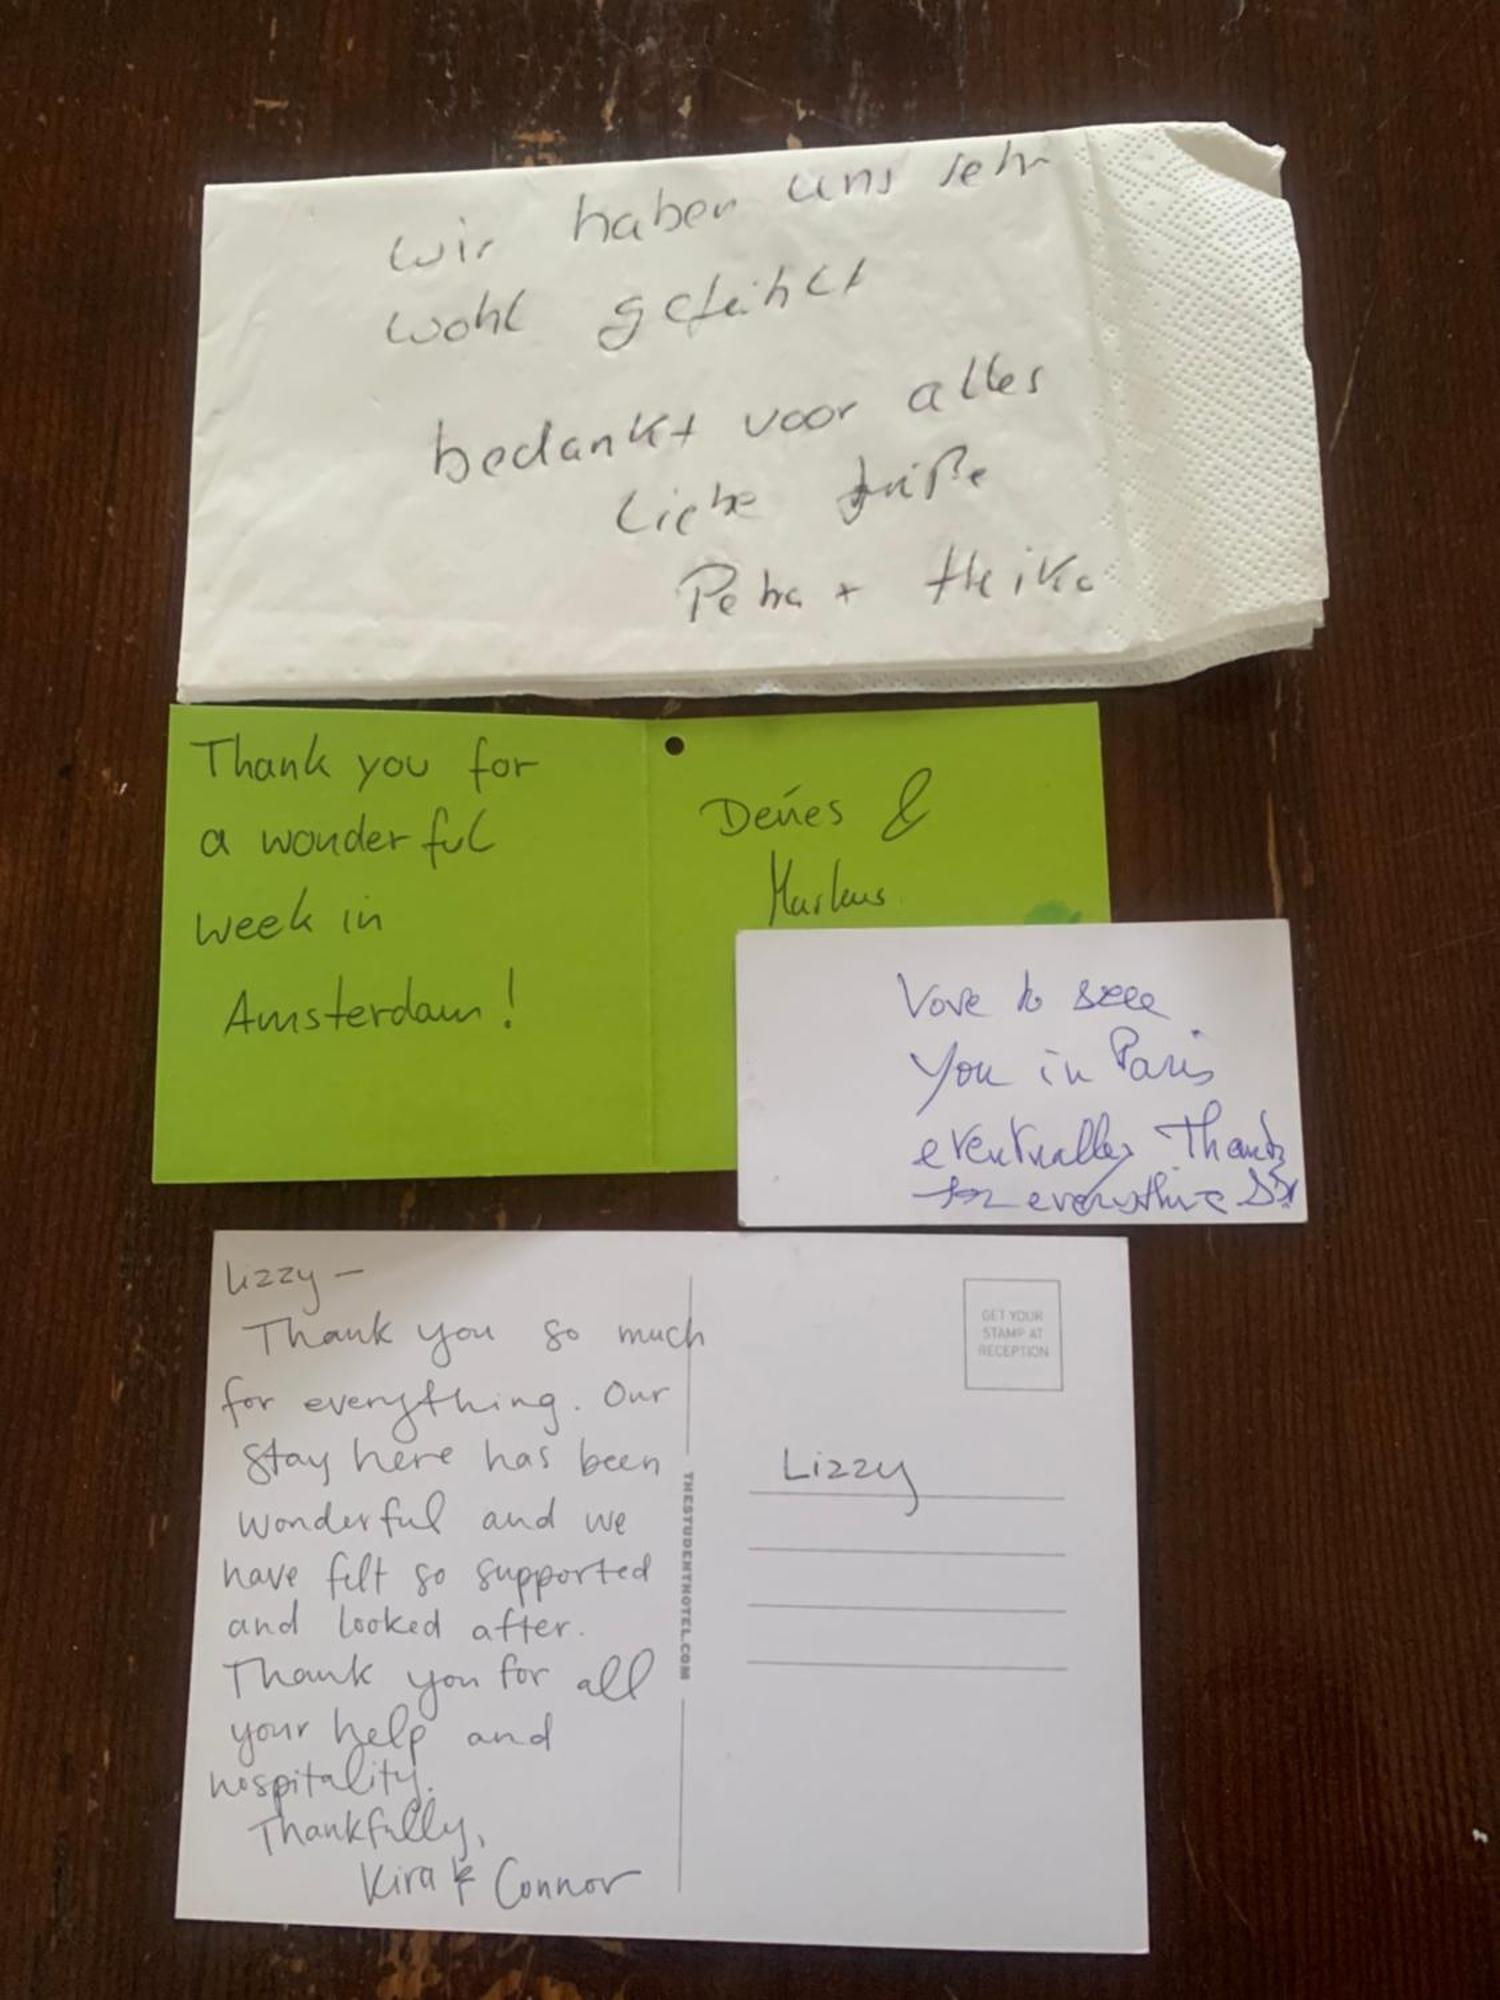 wir haben uns sehr
wohl gefühlt
bedankt voor alles
Liebe Grüße
Petra + Heike
Thank you for
a wonderful
week in
Amsterdam!
Dénes &
Markus
to seee
You in Paris
eventually Thanks
for everything
Lizzy —
Thank you so much
for everything. Our
stay here has been
wonderful and we
have felt so supported
and looked after.
Thank you for all
your help and
hospitality.
Thankfully,
Kira & Connor
THESTUDENTHOTEL.COM
GET YOUR
STAMP AT
RECEPTION
Lizzy